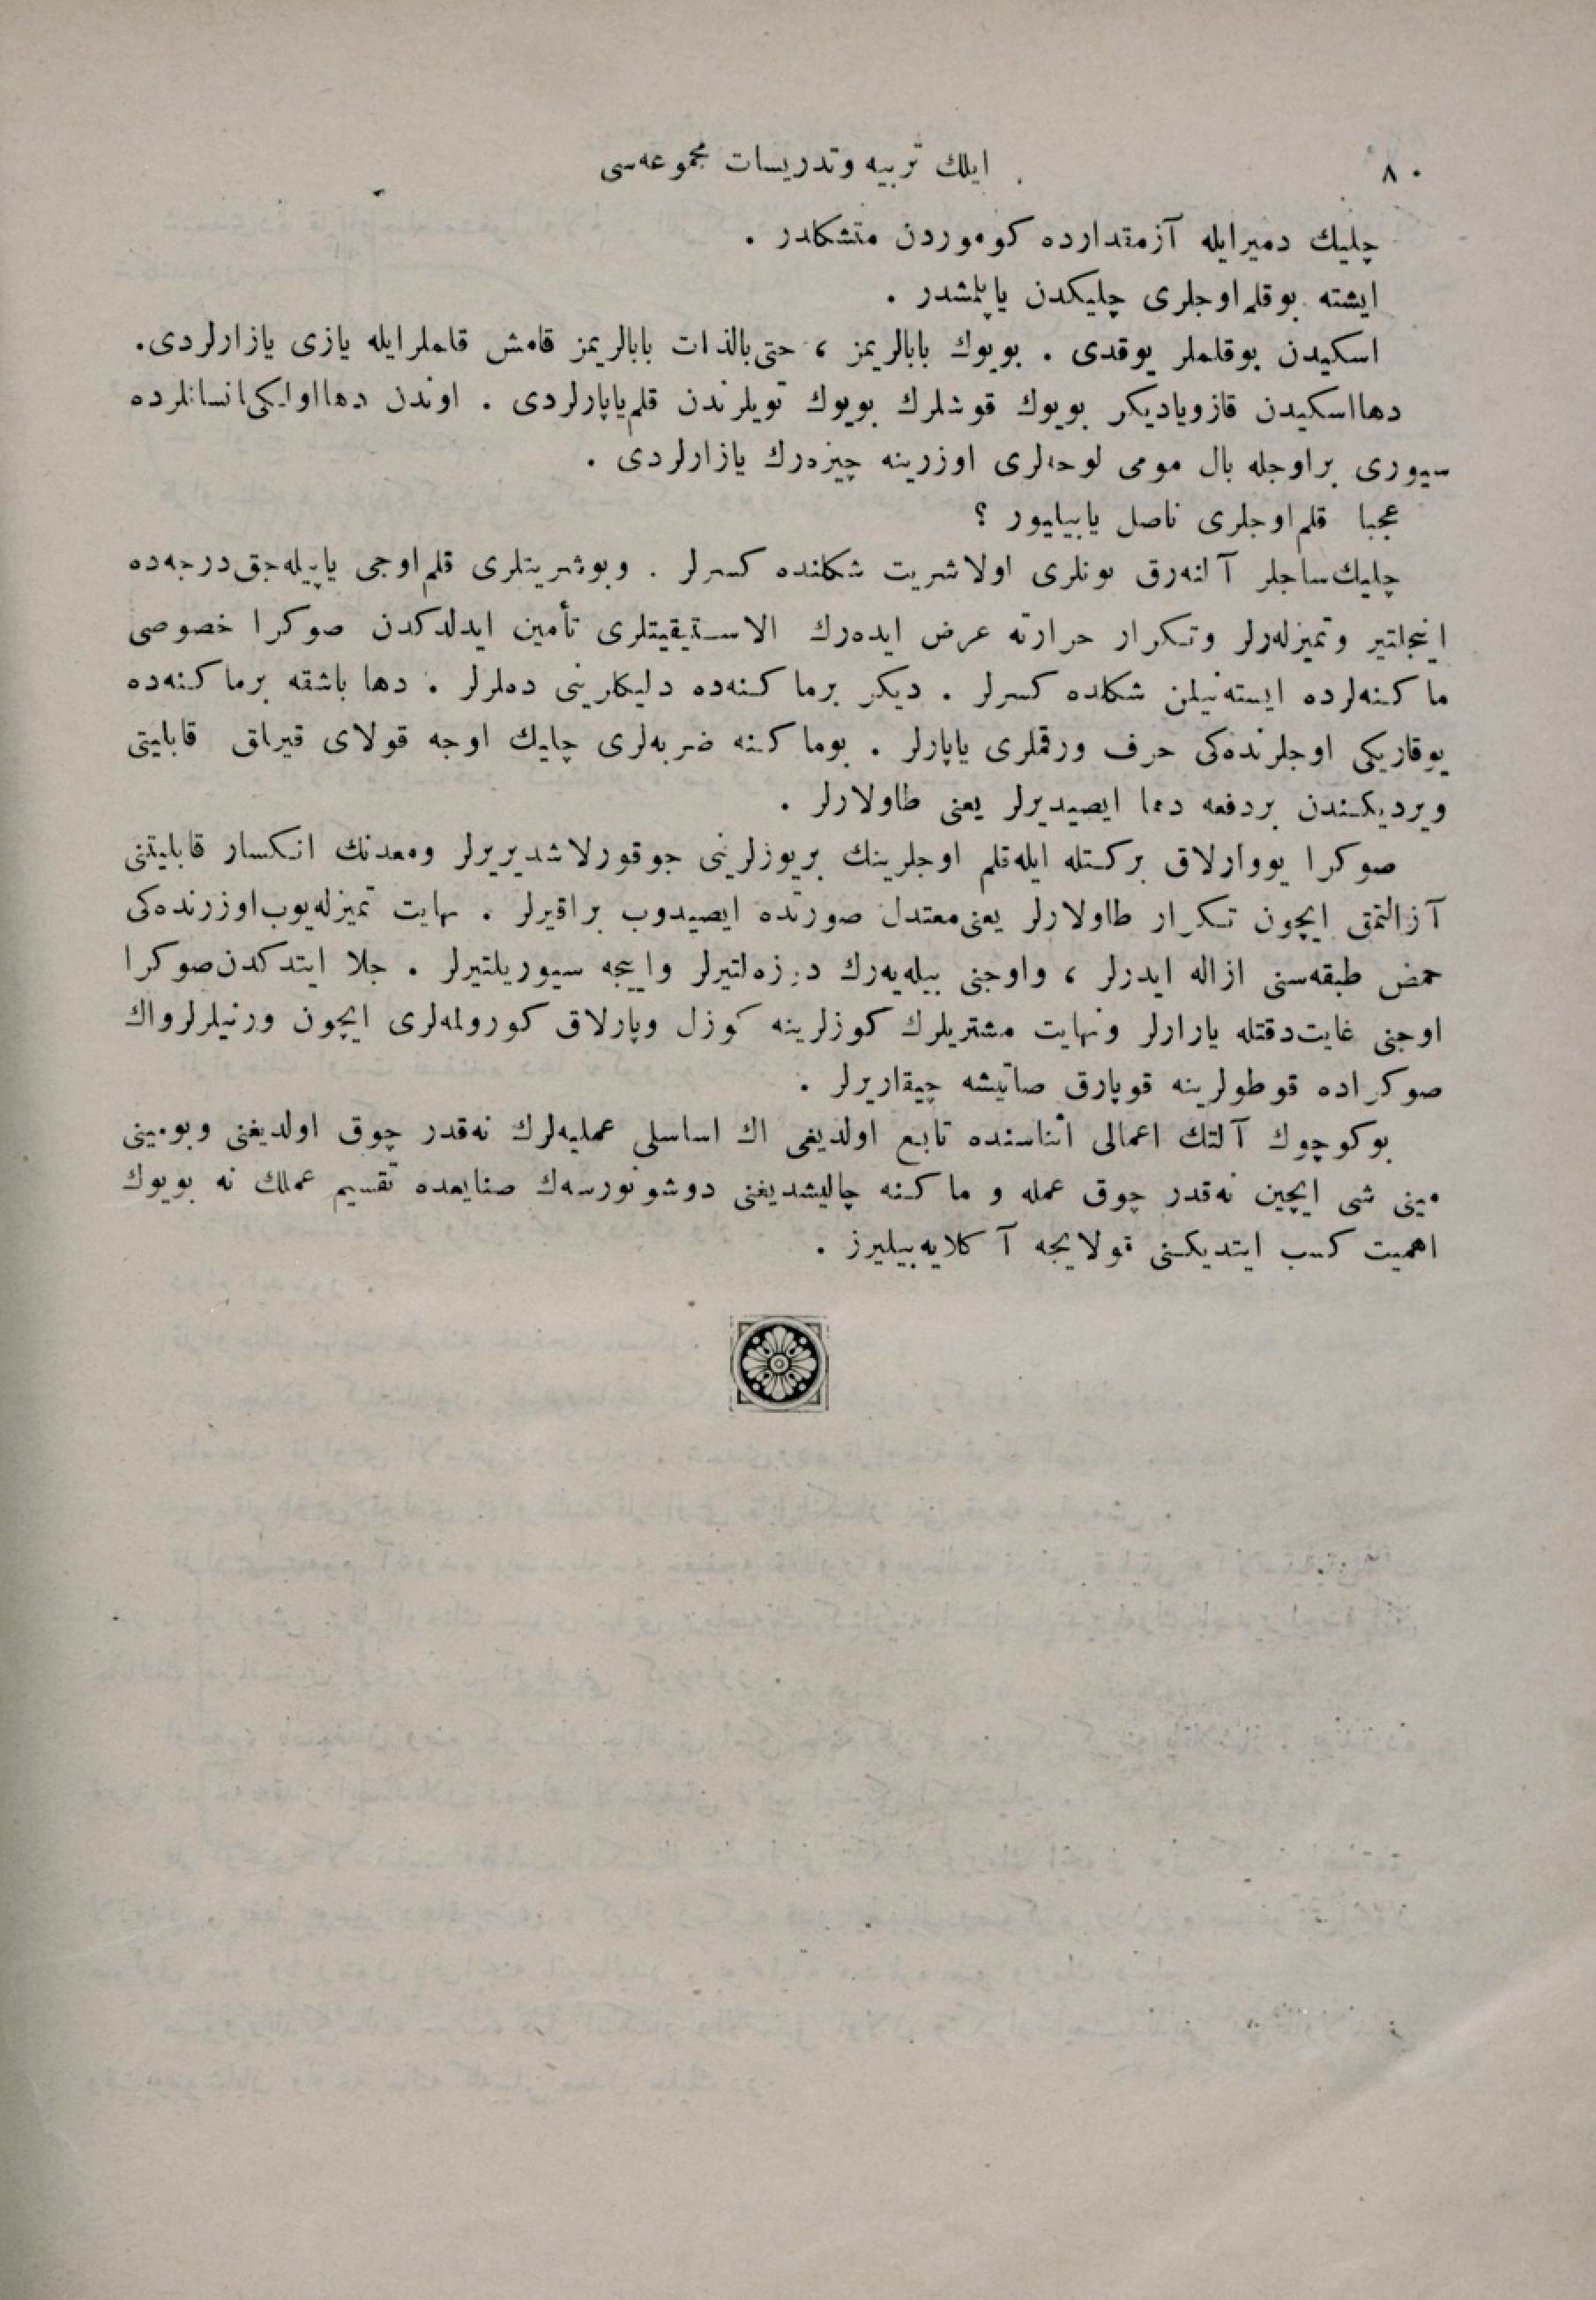 ٨٠
ايلك تربيه وتدريسات مجموعه‌سى
چليك دميرايله آزمقدارده كوموردن متشكلدر .
ايشته بوقلم‌اوجلرى چليكدن ياپلمشدر .
اسكيدن بوقلملر يوقدى . بويوك بابالريمز ، حتى‌بالذات بابالريمز قامش قلملرايله يازى يازارلردى.
دهااسكيدن قازوياديكر بويوك قوشلرك بويوك تويلرندن قلم‌ياپارلردى . اوندن دهااولكى‌انسانلرده
سيورى براوجله بال مومى لوحه‌لرى اوزرينه چيزه‌رك يازارلردى .
عجبا قلم‌اوجلرى ناصل ياپيليور ؟
چليك‌ساجلر آلنه‌رق بونلرى اولاشريت شكلنده كسرلر . وبوشريتلرى قلم‌اوجى ياپيله‌جق‌درجه‌ده
اينجلتير وتميزله‌رلر وتكرار حرارته عرض ايده‌رك الاستيقيتلرى تأمين ايدلدكدن صوكرا خصوصى
ماكنه‌لرده ايسته‌نيلن شكلده كسرلر . ديكر برماكنه‌ده دليكلرينى ده‌لرلر . دها باشقه برماكنه‌ده
يوقاريكى اوجلرنده‌كى حرف ورقملرى ياپارلر . بوماكنه ضربه‌لرى چليك اوجه قولاى قيراق قابليتى
ويرديكندن بردفعه دها ايصيديرلر يعنى طاولارلر .
صوكرا يووارلاق بركتله ايله‌قلم اوجلرينك بريوزلرينى چوقورلاشديريرلر ومعدنك انكسار قابليتنى
آزالتمق ايچون تكرار طاولارلر يعنى‌معتدل صورتده ايصيدوب براقيرلر . نهايت تميزله‌يوب‌اوزرنده‌كى
حمض طبقه‌سنى ازاله ايدرلر ، واوجنى بيله‌يه‌رك دوزه‌لتيرلر واييجه سيوريلتيرلر . جلا ايتدكدن‌صوكرا
اوجنى غايت‌دقتله يارارلر ونهايت مشتريلرك كوزلرينه كوزل وپارلاق كورولمه‌لرى ايچون ورنيلرلرواك
صوكراده قوطولرينه قويارق صاتيشه چيقاريرلر .
بوكوچوك آلتك اعمالى اثناسنده تابع اولديغى اك اساسلى عمليه‌لرك نه‌قدر چوق اولديغنى وبومينى
مينى شى ايچين نه‌قدر چوق عمله و ماكنه چاليشديغنى دوشونورسه‌ك صنايعده تقسيم عملك نه بويوك
اهميت كسب ايتديكنى قولايجه آكلايه‌بيليرز .